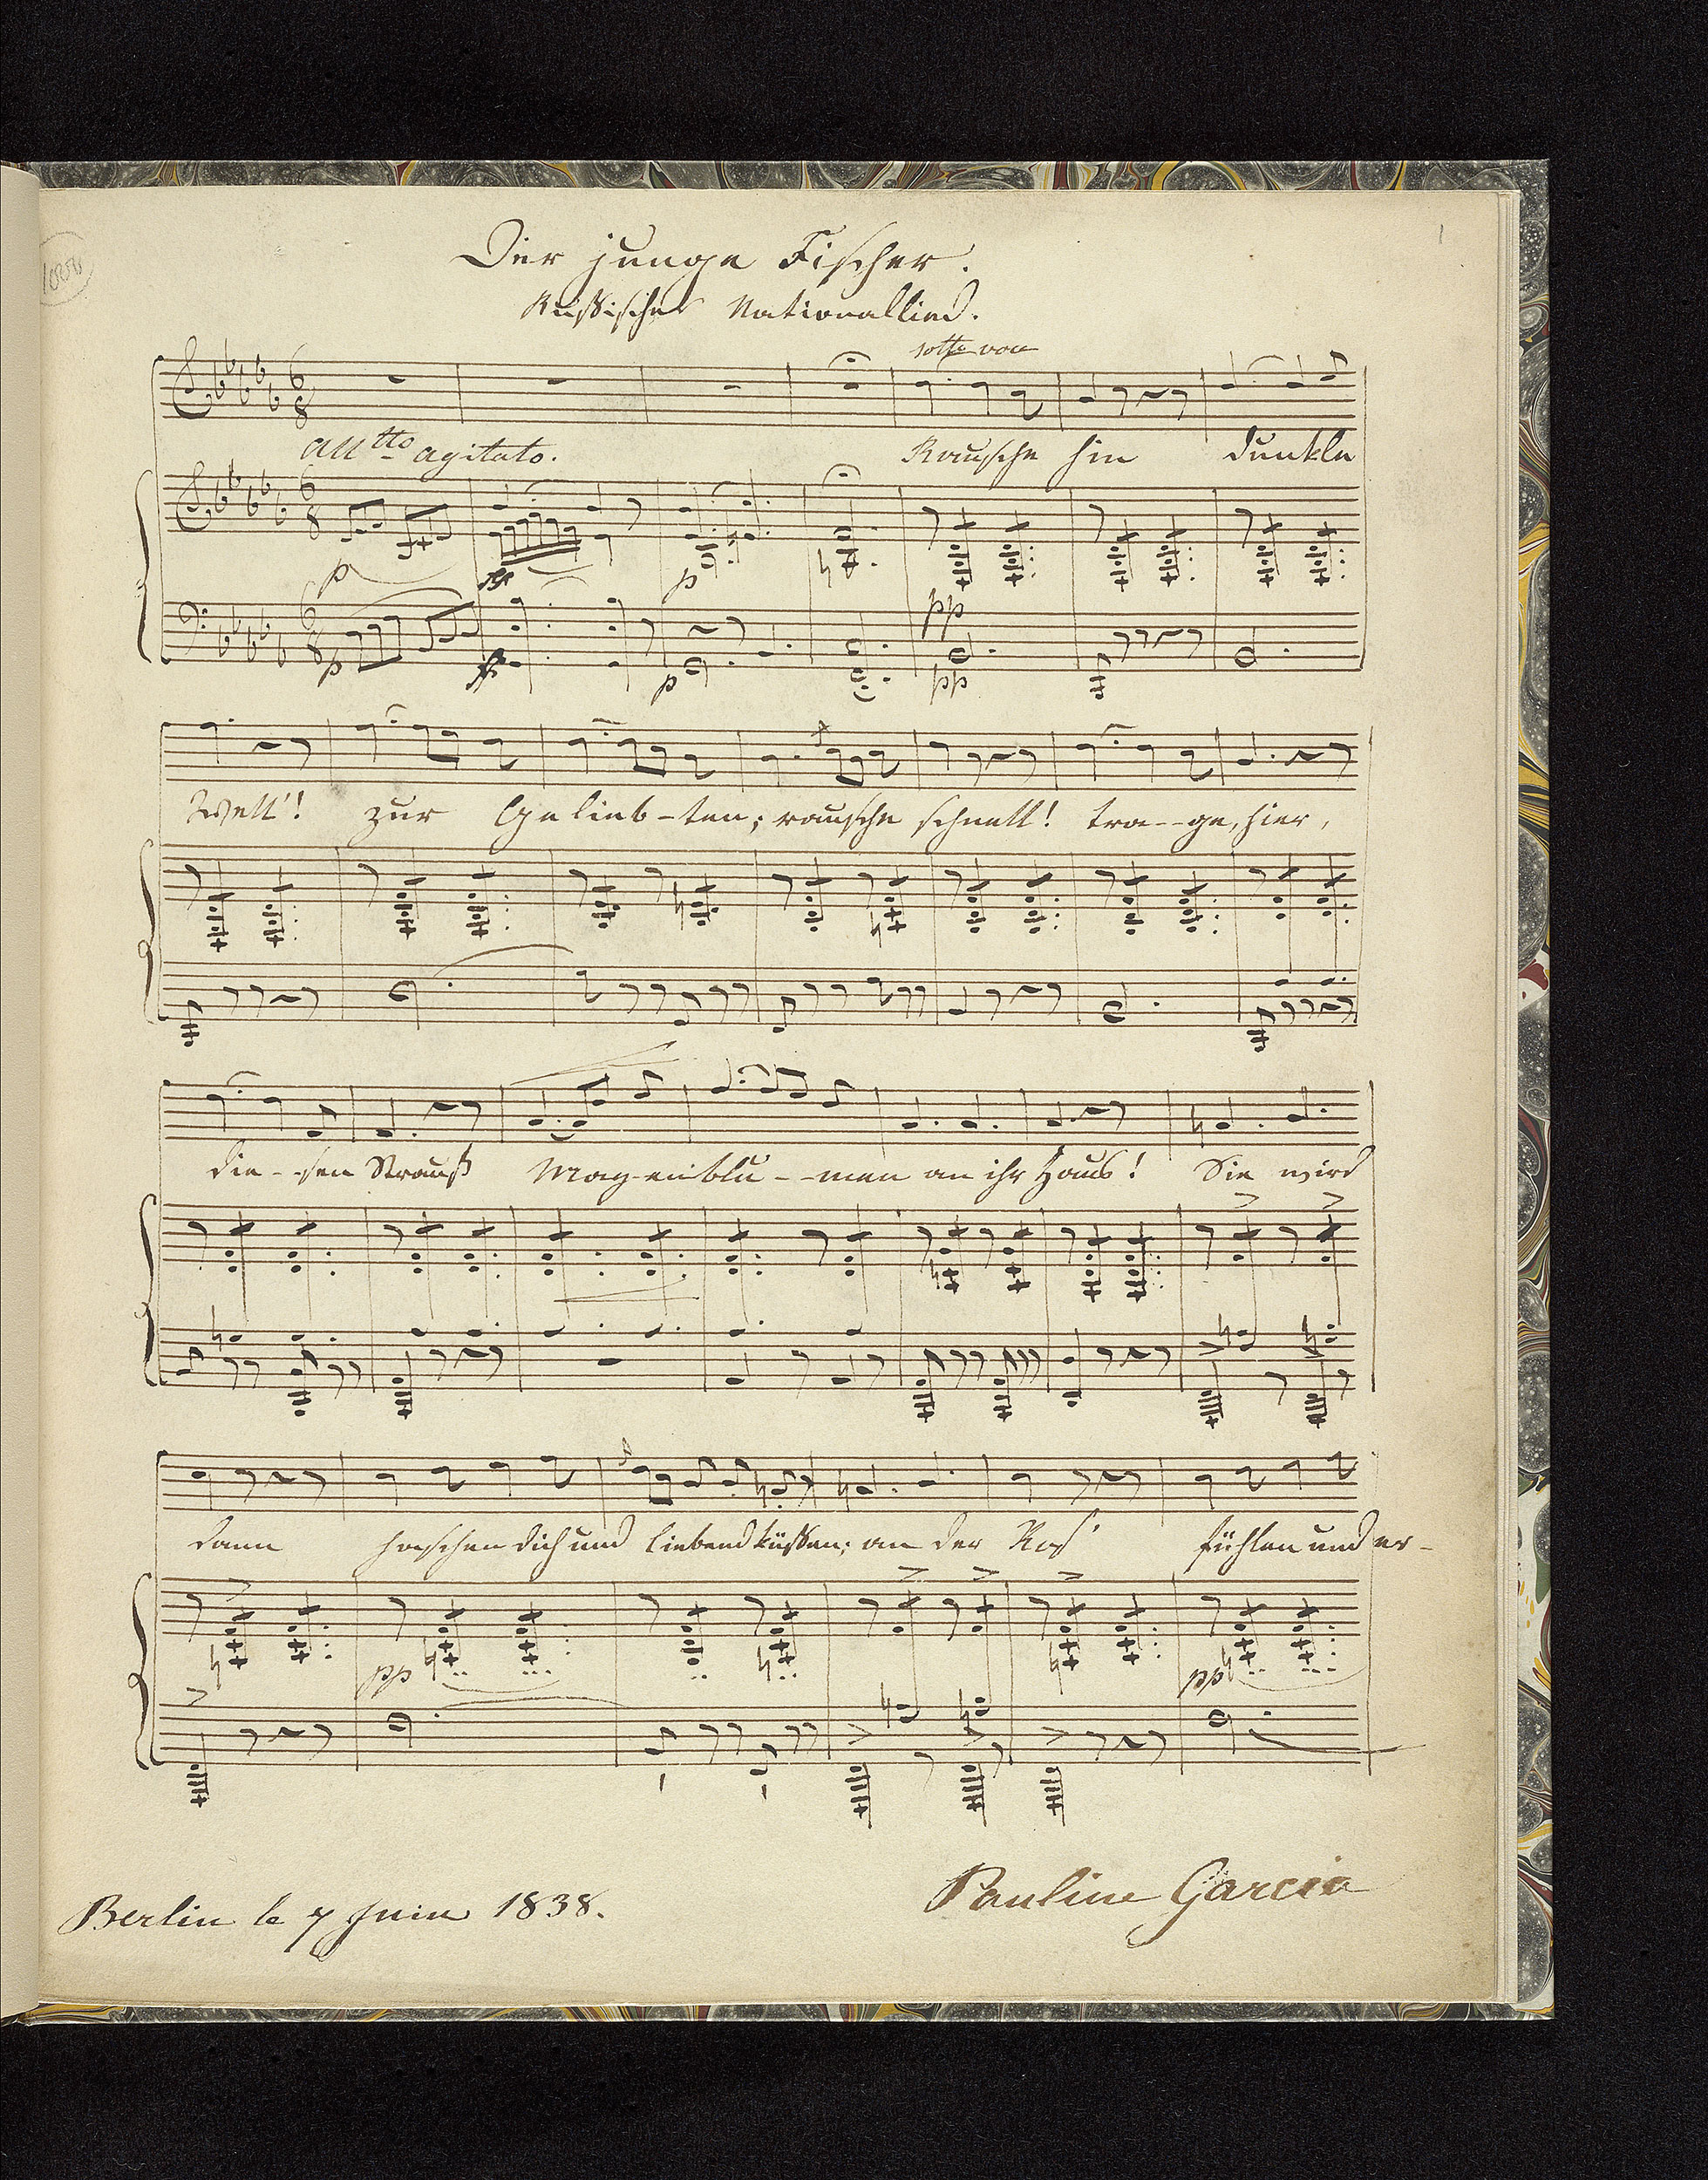 1
Der junge Fischer.
Russisches Nationallied.
sotto voce
Alltto agitato.
Rausche hin dunkle
p
fz
p
pp
p
fz
p
pp
Well'! zur Gelieb-ten; rausche schnell! tra--ge, hier,
die--sen Strauß May-enblu--men an ihr Haus! Sie wird
dann haschen dich und liebend küssen; an der Ros' fühlen und er-
pp
pp
Berlin le 7 Juin 1838.
Pauline Garcia